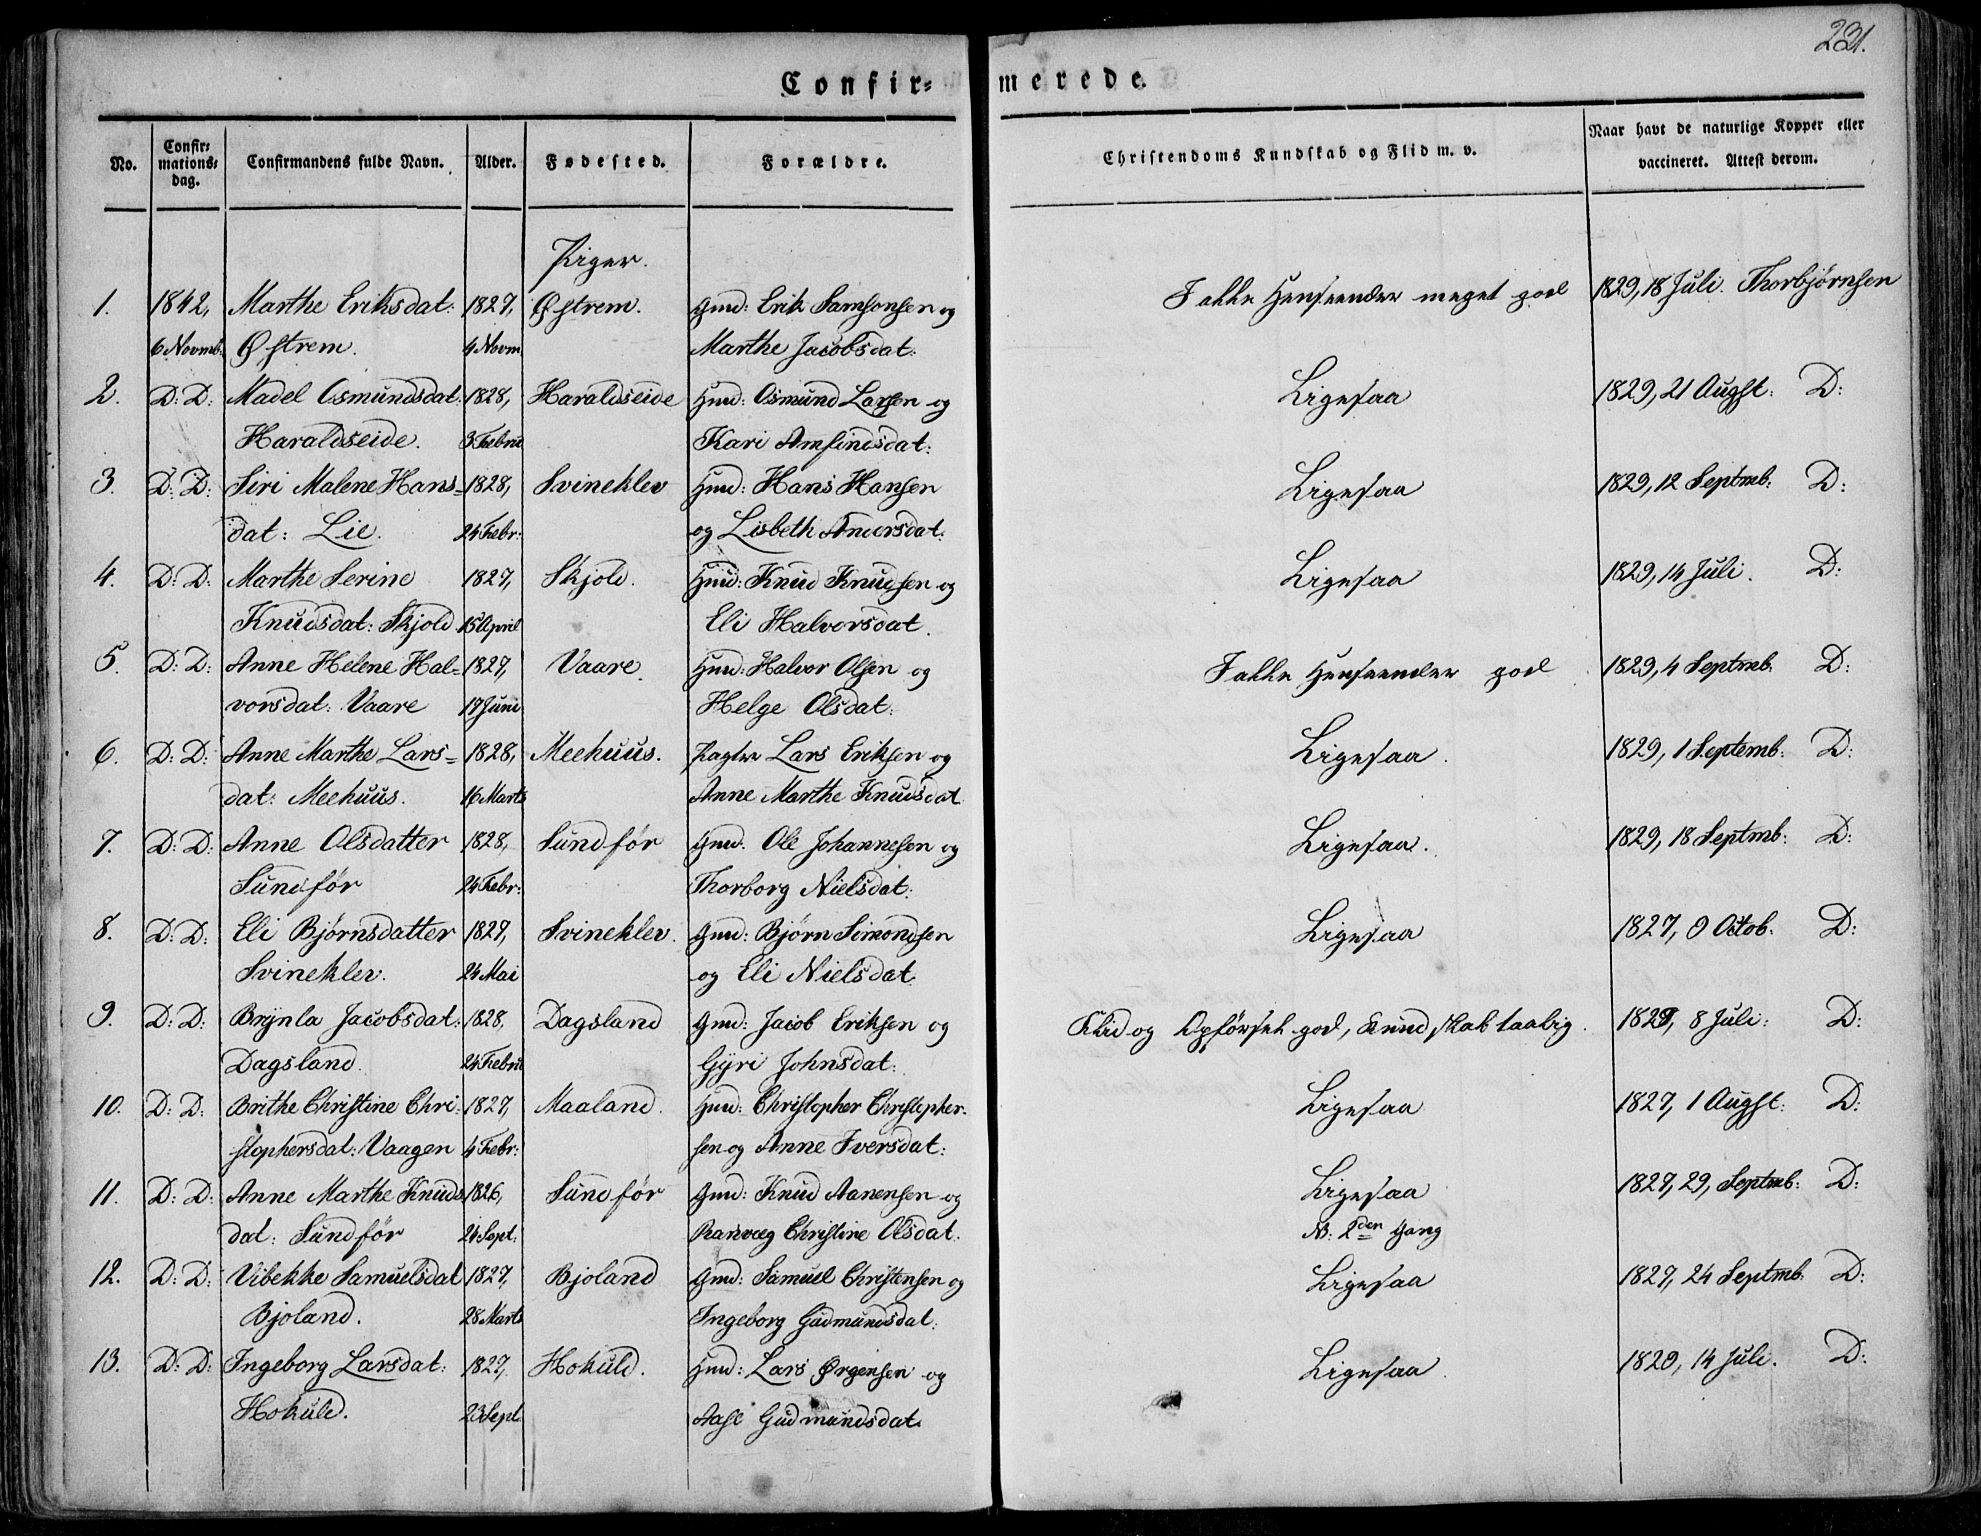 231.
Confir= merede.
No. Confir= mations= dag. Confirmandens fulde Navn. Alder. Fødested. Forældre. Christendoms Kundskab og Flid m. v. Naar havt de naturlige Kopper eller vaccineret. Attest derom.
Piger.
1. 1842, Marthe Eriksdat: 1827, Østrem. Gmd: Erik Samsonsen og I alle Henseender meget god 1829, 18 Juli. Thorbjørnsen
6 Novmb: Østrem. 4 Novm Marthe Jacobsdat:
2. D: D: Madel Osmundsdat: 1828, Haraldseide Hmd: Osmund Larsen og Ligesaa 1829, 21 Augst: D:
Haraldseide. 3 Febru Kari Amfindsdat:
3. D: D: Siri Malene Hans= 1828, Svineklev Hmd: Hans Hansen Ligesaa 1829, 12 Septmb: D:
dat: Lie. 24 Febr: og Lisbeth Andersdat:
4. D: D: Marthe Serine 1827, Skjold. Hmd: Knud Knudsen og Ligesaa 1829, 14 Juli. D:
Knudsdat: Skjold 15 April Eli Halvorsdat.
5. D: D: Anne Helene Hal= 1827, Vaare. Hmd: Halvor Olsen og I alle Henseender god 1829, 4 Septmb. D:
vorsdat: Vaare 17 Juni Helge Olsdat:
6. D: D: Anne Marthe Lars= 1828, Meehuus. Pagter Lars Eriksen og Ligesaa. 1829, 1 Septemb: D:
dat: Meehuus. 16 Marts Anne Marthe Knudsdat
7. D: D: Anne Olsdatter 1828, Sundför Gmd. Ole Johannesen og Ligesaa. 1829, 18 Septmb: D:
Sundför 24 Febr: Thorborg Nielsdat:
8. D: D: Eli Bjørnsdatter 1827, Svineklev. Gmd: Bjørn Simondsen Ligesaa 1827, 9 Octob: D:
Svineklev. 24 Mai og Eli Nielsdat.
9. D: D: Brynla Jacobsdat: 1828, Dagsland Gmd: Jacob Eriksen og Flid og Opförsel god, Kundskab taalig. 8 Juli: D:
Dagsland. 24 Febru Gyri Johnsdat:
10. D: D: Brithe Christine Chri= 1827, Maaland. Hmd: Christopher Christopher= Ligesaa 1827, 1 Augst: D:
stophersdat: Vaagen 4 Febr: sen og Anne Iversdat:
11. D: D: Anne Marthe Knuds 1826, Sundför Gmd: Knud Aanensen og Ligesaa 1827, 29, Septmb: D:
dat: Sundför 24 Sept: Ranvæg Christine Olsdat. NB: 2den Gang
12. D: D: Vibekke Samuelsdat 1827, Bjoland Gmd: Samuel Christensen og Ligesaa 1827, 24 Septmb: D:
Bjoland. 28 Marts Ingeborg Gudmundsdat:
13. D: D: Ingeborg Larsdat: 1827, Hokuld. Hmd: Lars Ørgensen og Ligesaa. 1829, 14 Juli. D:
Hokuld. 23 Sept. Aase Gudmundsdat.